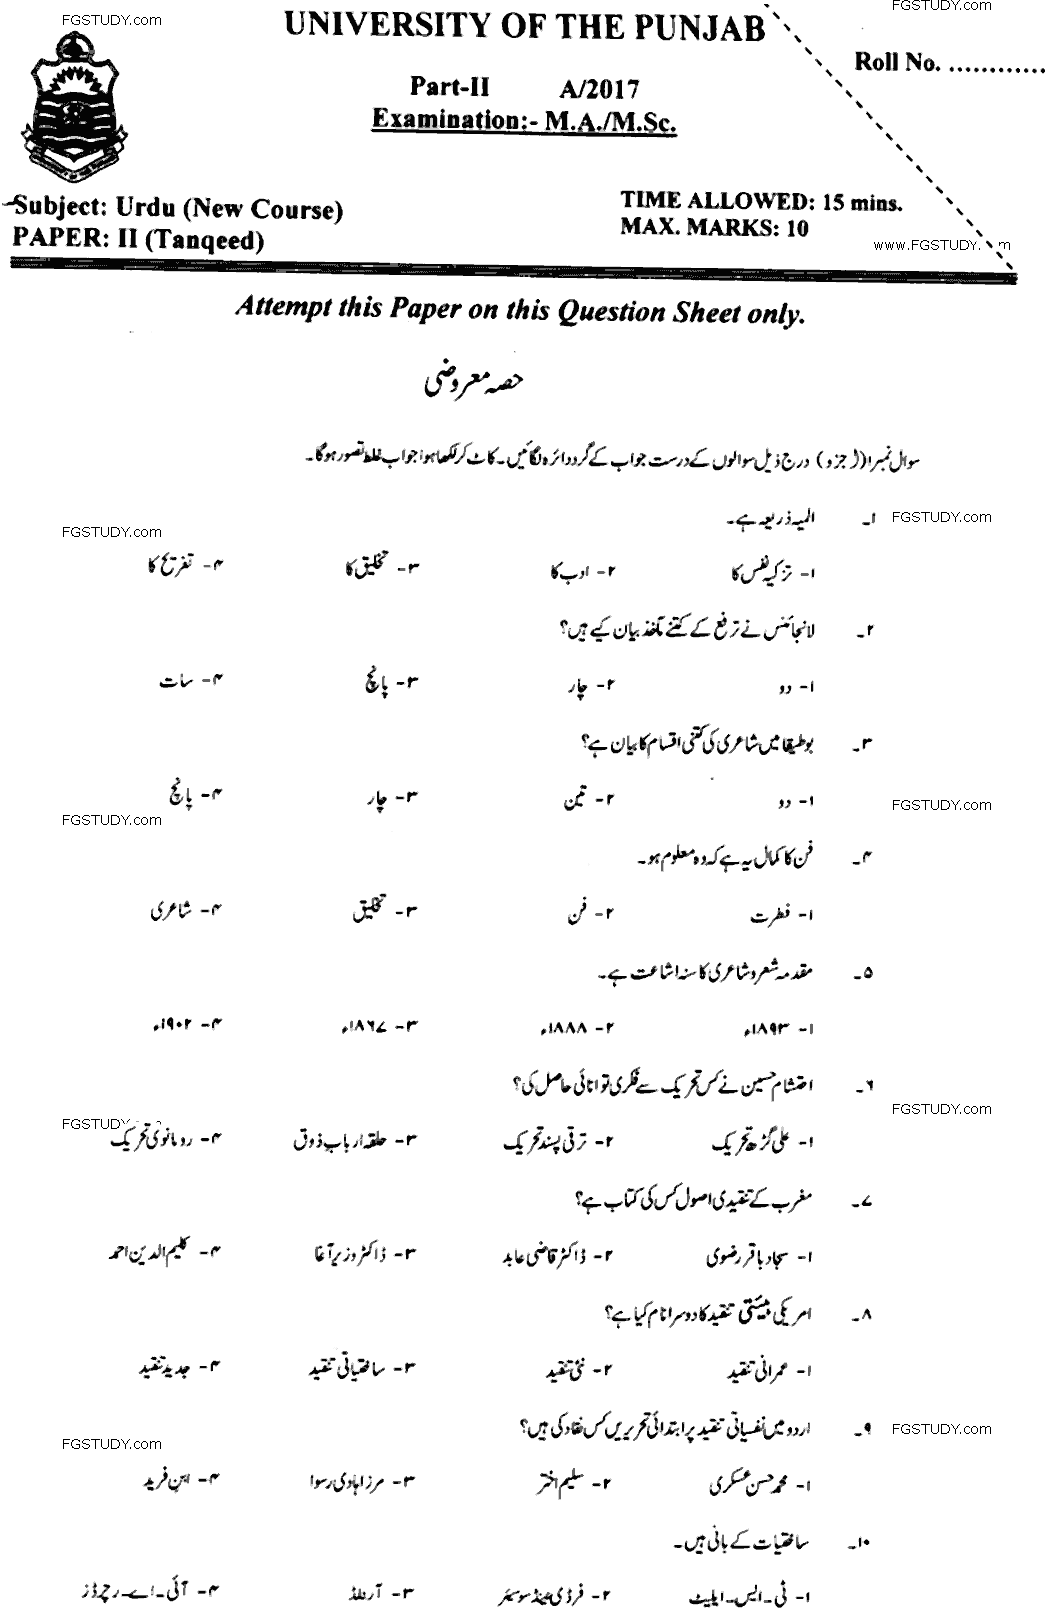 FGSTUDY.com
FGSTUDY.com
UNIVERSITY OF THE PUNJAB
Roll No. ............
Part-II A/2017
Examination:- M.A./M.Sc.
Subject: Urdu (New Course)
TIME ALLOWED: 15 mins.
PAPER: II (Tanqeed)
MAX. MARKS: 10
www.FGSTUDY.com
Attempt this Paper on this Question Sheet only.
حصہ معروضی
سوال نمبر۱ (کل جزو) درج ذیل سوالوں کے درست جواب کے گرد دائرہ لگائیں۔ کاٹ کر لکھا ہوا جواب غلط تصور ہوگا۔
۱۔ المیہ ذریعہ ہے۔
FGSTUDY.com
FGSTUDY.com
۱- تزکیہ نفس کا ۲- ادب کا ۳- تخلیق کا ۴- تفریح کا
۲۔ لانجائنس نے ترفع کے کتنے مآخذ بیان کیے ہیں؟
۱- دو ۲- چار ۳- پانچ ۴- سات
۳۔ بوطیقا میں شاعری کی کتنی اقسام کا بیان ہے؟
۱- دو ۲- تین ۳- چار ۴- پانچ
FGSTUDY.com
FGSTUDY.com
۴۔ فن کا کمال یہ ہے کہ وہ معلوم ہو۔
۱- فطرت ۲- فن ۳- تخلیق ۴- شاعری
۵۔ مقدمہ شعر و شاعری کا سنہ اشاعت ہے۔
۱- ۱۸۹۳ء ۲- ۱۸۸۸ء ۳- ۱۸۶۷ء ۴- ۱۹۰۲ء
۶۔ احتشام حسین نے کس تحریک سے فکری توانائی حاصل کی؟
FGSTUDY.com
FGSTUDY.com
۱- علی گڑھ تحریک ۲- ترقی پسند تحریک ۳- حلقہ ارباب ذوق ۴- رومانوی تحریک
۷۔ مغرب کے تنقیدی اصول کس کی کتاب ہے؟
۱- سجاد باقر رضوی ۲- ڈاکٹر قاضی عابد ۳- ڈاکٹر وزیر آغا ۴- کلیم الدین احمد
۸۔ امریکی ہیئتی تنقید کا دوسرا نام کیا ہے؟
۱- عمرانی تنقید ۲- نئی تنقید ۳- ساختیاتی تنقید ۴- جدید تنقید
۹۔ اردو میں نفسیاتی تنقید پر ابتدائی تحریریں کس نقاد کی ہیں؟
FGSTUDY.com
FGSTUDY.com
۱- محمد حسن عسکری ۲- سلیم اختر ۳- مرزا ہادی رسوا ۴- ابن فرید
۱۰۔ ساختیات کے بانی ہیں۔
۱- ٹی۔ایس۔ایلیٹ ۲- فرڈی ننڈ سوسیئر ۳- آرنلڈ ۴- آئی۔اے۔رچرڈز